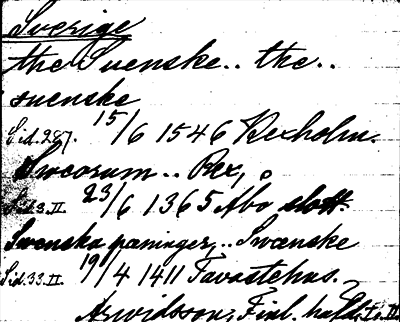 Sverige
the Suenske.. the..
suenske
Sid.287. 15/6 1546 Kexholm.
Sweorum.. Rex,
Sid.3.II. 23/6 1365 Abo slott.
Swenska pæninger,.. Swænske
Sid.33.II. 19/4 1411 Tavastehus.
Arwidsson, Finl. hafd. I. II.